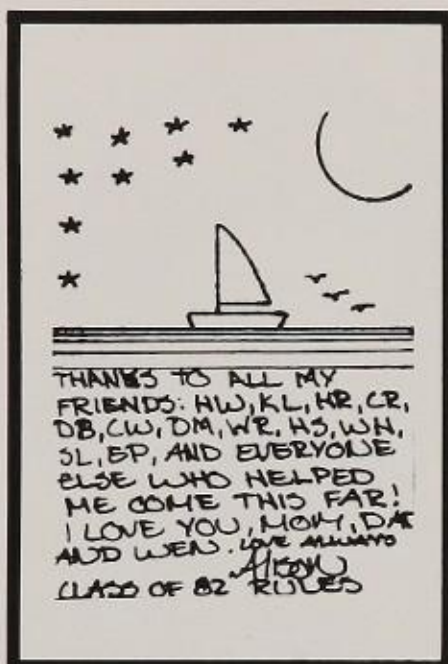 THANKS TO ALL MY
FRIENDS: HW, KL, HR, CR,
DB, CW, DM, WR, HS, WH,
SL, EP, AND EVERYONE
ELSE WHO HELPED
ME COME THIS FAR!
I LOVE YOU, MOM, DAD
AND WEN. LOVE ALWAYS
Alison
CLASS OF 82 RULES